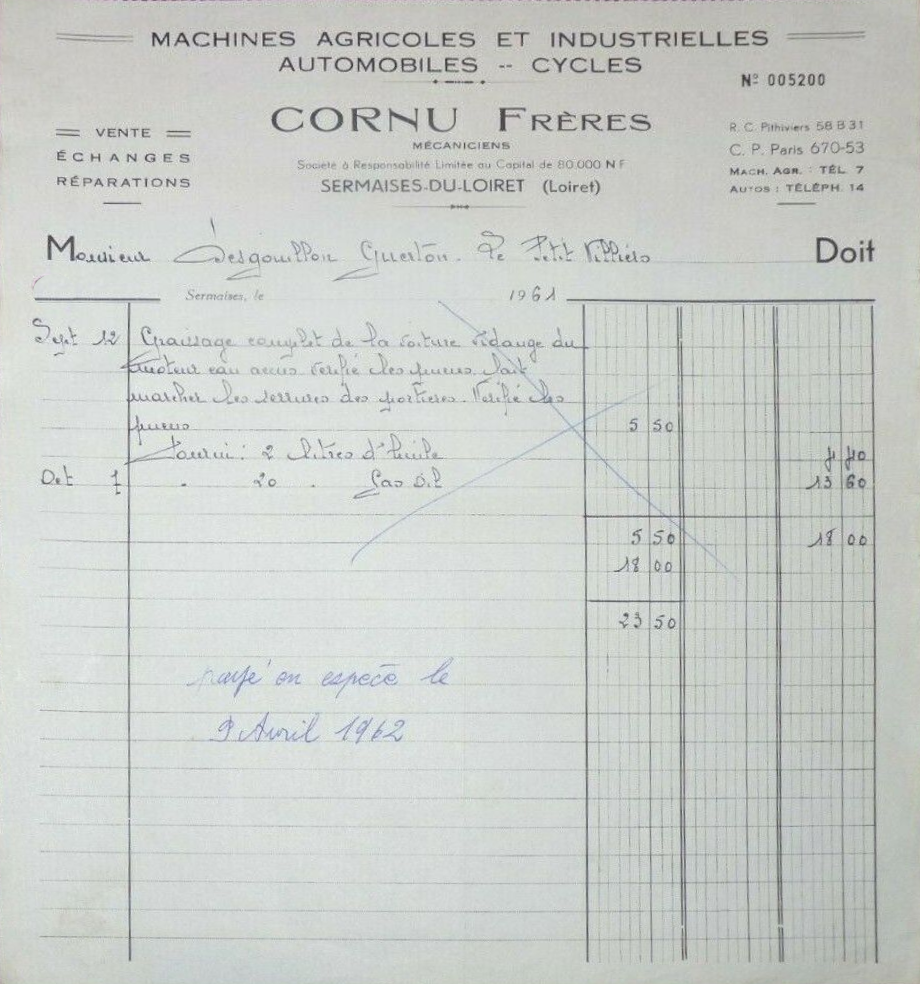 MACHINES AGRICOLES ET INDUSTRIELLES
AUTOMOBILES -- CYCLES
Nº 005200
CORNU FRÈRES
MÉCANICIENS
Société à Responsabilité Limitée au Capital de 80.000 NF
SERMAISES-DU-LOIRET (Loiret)
VENTE
ÉCHANGES
RÉPARATIONS
R. C. Pithiviers 58 B 31
C. P. Paris 670-53
MACH. AGR. : TÉL. 7
AUTOS : TÉLÉPH. 14
Monsieur Desgouillon Guerton. Le Petit Villiers Doit
Sermaises, le 1961
Sept 12 Graissage complet de la voiture vidange du
moteur eau accus verifié les pneus fait
marcher les serrures des portieres. Verifié les
pneus 5 50
Fourni : 2 litres d'huile 4 40
Oct 7 . 20 . Gas Oil 13 60
5 50 18 00
18 00
23 50
payé en espece le
9 Avril 1962